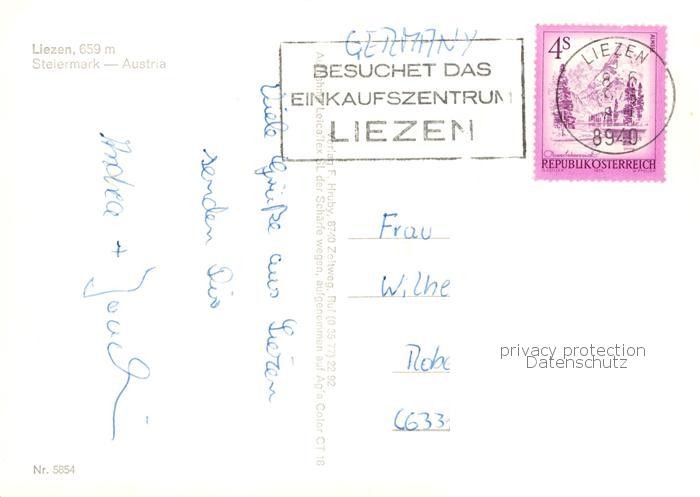 Liezen, 659 m
Steiermark — Austria
GERMANY
BESUCHET DAS
EINKAUFSZENTRUM
LIEZEN
4S
ALMSEE
LIEZEN
8940
REPUBLIK ÖSTERREICH
Viele Grüße aus Liezen
senden Dir
Andrea +
Verlag F. Hruby, 8740 Zeltweg, Ruf (0 35 77) 22 92
der Schärfe wegen, aufgenommen auf Agfa Color CT 18
Frau
Wilhe
Robe
6633
privacy protection
Datenschutz
Nr. 5854